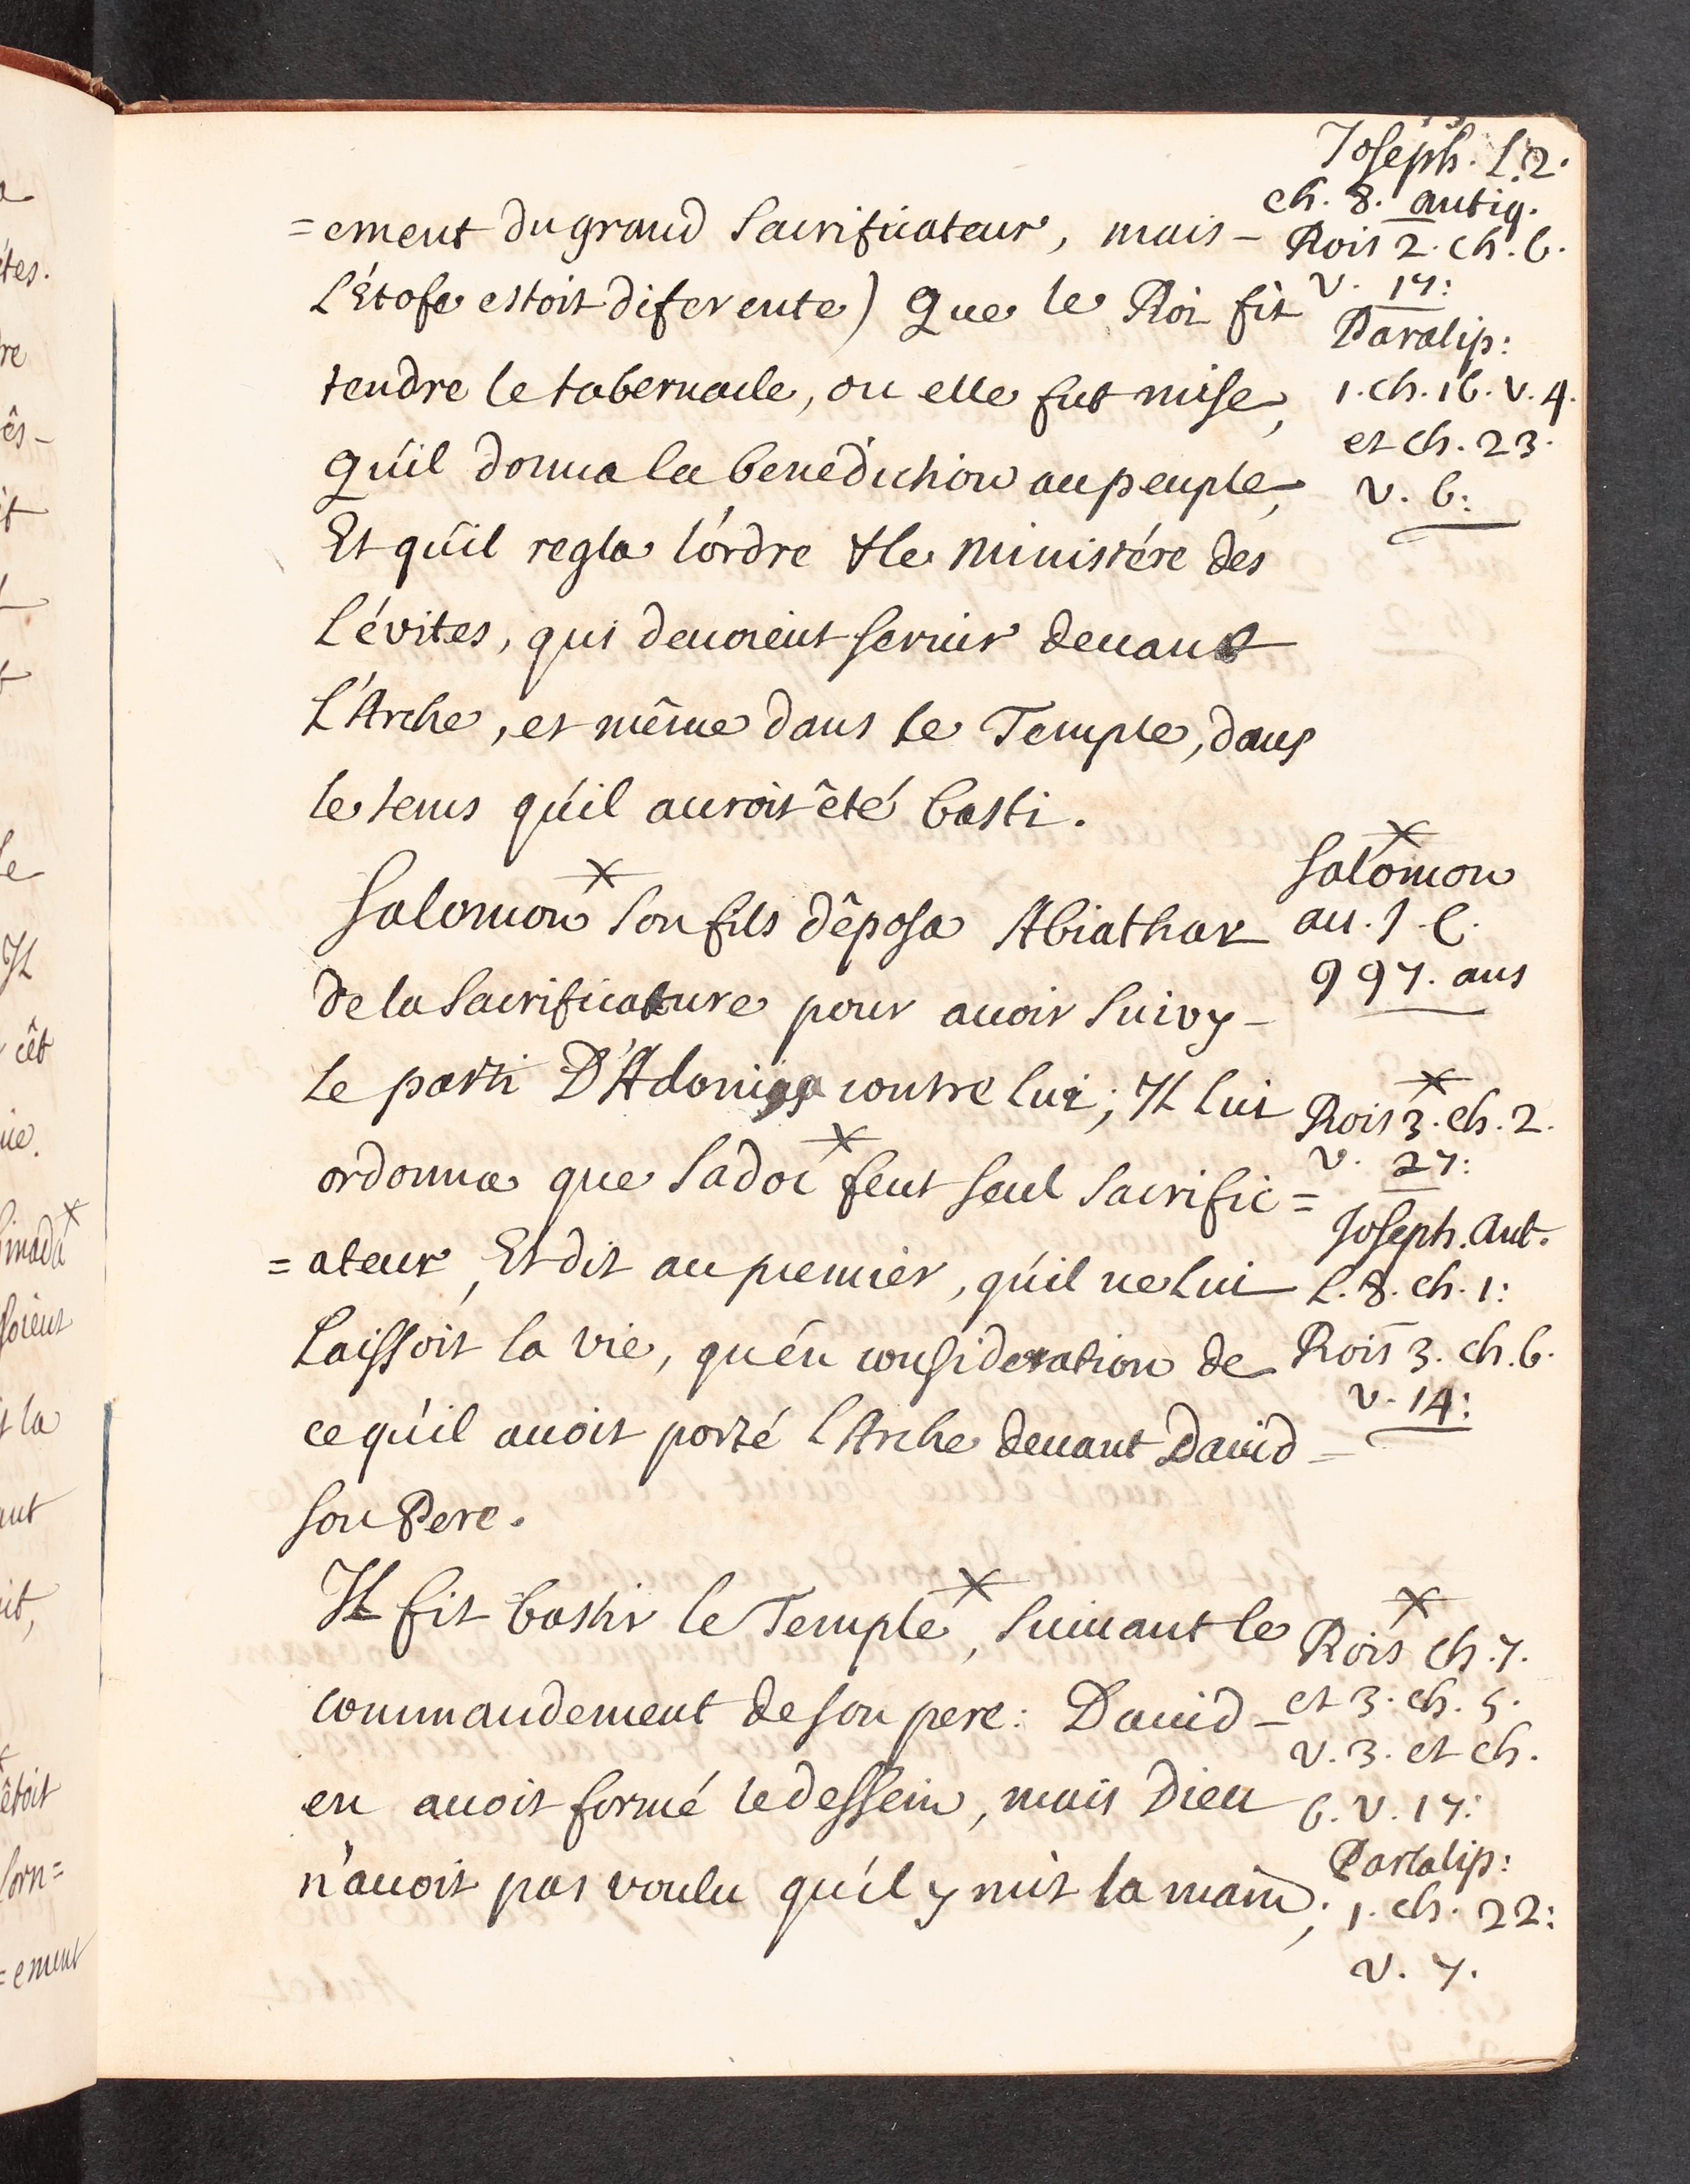 =ement du grand Sacrificateur, mais-
L'Étofe estoit diferente) Que le Roi fit
tendre le tabernacle, ou elle fut mise,
Qu'il donna la benediction au peuple,
Et qu'il regla l'ordre & le ministére des
Lévites, qui devoient servir devant
L'Arche, et même dans le Temple, dans
le tems qu'il auroit êté basti.
Salomon x Son fils dêposa Abiathar
de la Sacrificature pour avoir Suivy-
le parti D'Adonias contre lui; Il lui
ordonna que Sadoc x feut seul Sacrific=
=ateur, Et dit au premier, qu'il ne lui
Laissoit la vie, qu'en consideration de
ce qu'il avoit porté l'Arche devant David=
son Pere.
Il fit bastir le Temple x, Suivant le
commandement de son pere: David-
en avoit formé le dessein, mais Dieu
n'avoit pas voulu qu'il y mit la main;
Joseph. L. 2.
ch. 8. antiq.
Rois 2. ch. 6.
v. 17:
Paralip:
1. ch. 16. v. 4.
et ch. 23.
v. 6:
x
Salomon
au. J. C.
997. ans
x
Rois 3. ch. 2.
v. 27:
Joseph. Ant.
L. 8. ch. 1:
Rois 3. ch. 6.
v. 14:
x
Rois ch. 7.
et 3. ch. 5.
v. 3. et ch.
6. v. 17:
Paralip:
1. ch. 22:
v. 7.